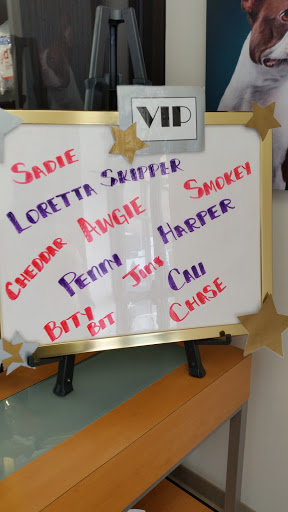 VIP
SADIE
LORETTA SKIPPER
SMOKEY
CHEDDAR AWGIE HARPER
PENNY JINX CALI
BITY BIT CHASE